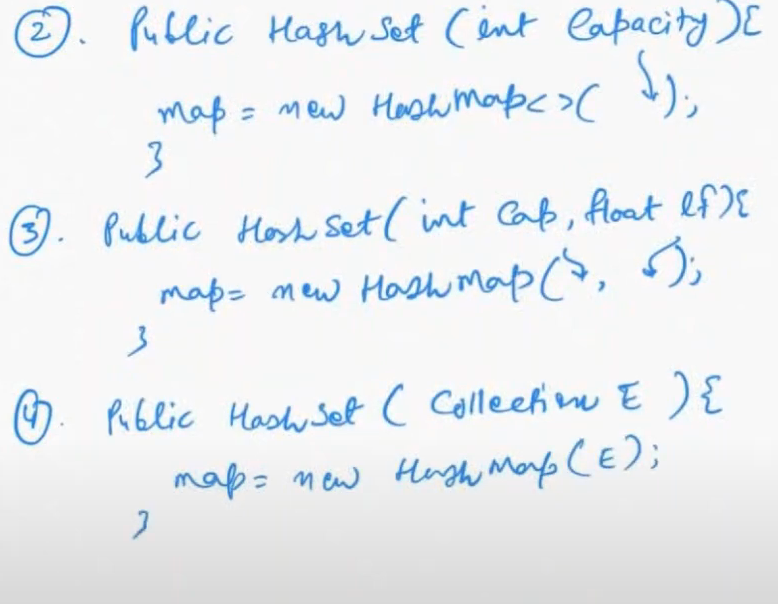 ②. Public HashSet (int Capacity){
map = new HashMap<>( ↓);
}
③. Public HashSet( int Cap, float lf){
map= new HashMap(↘, ↙);
}
④. Public HashSet ( Collection E ){
map= new HashMap(E);
}